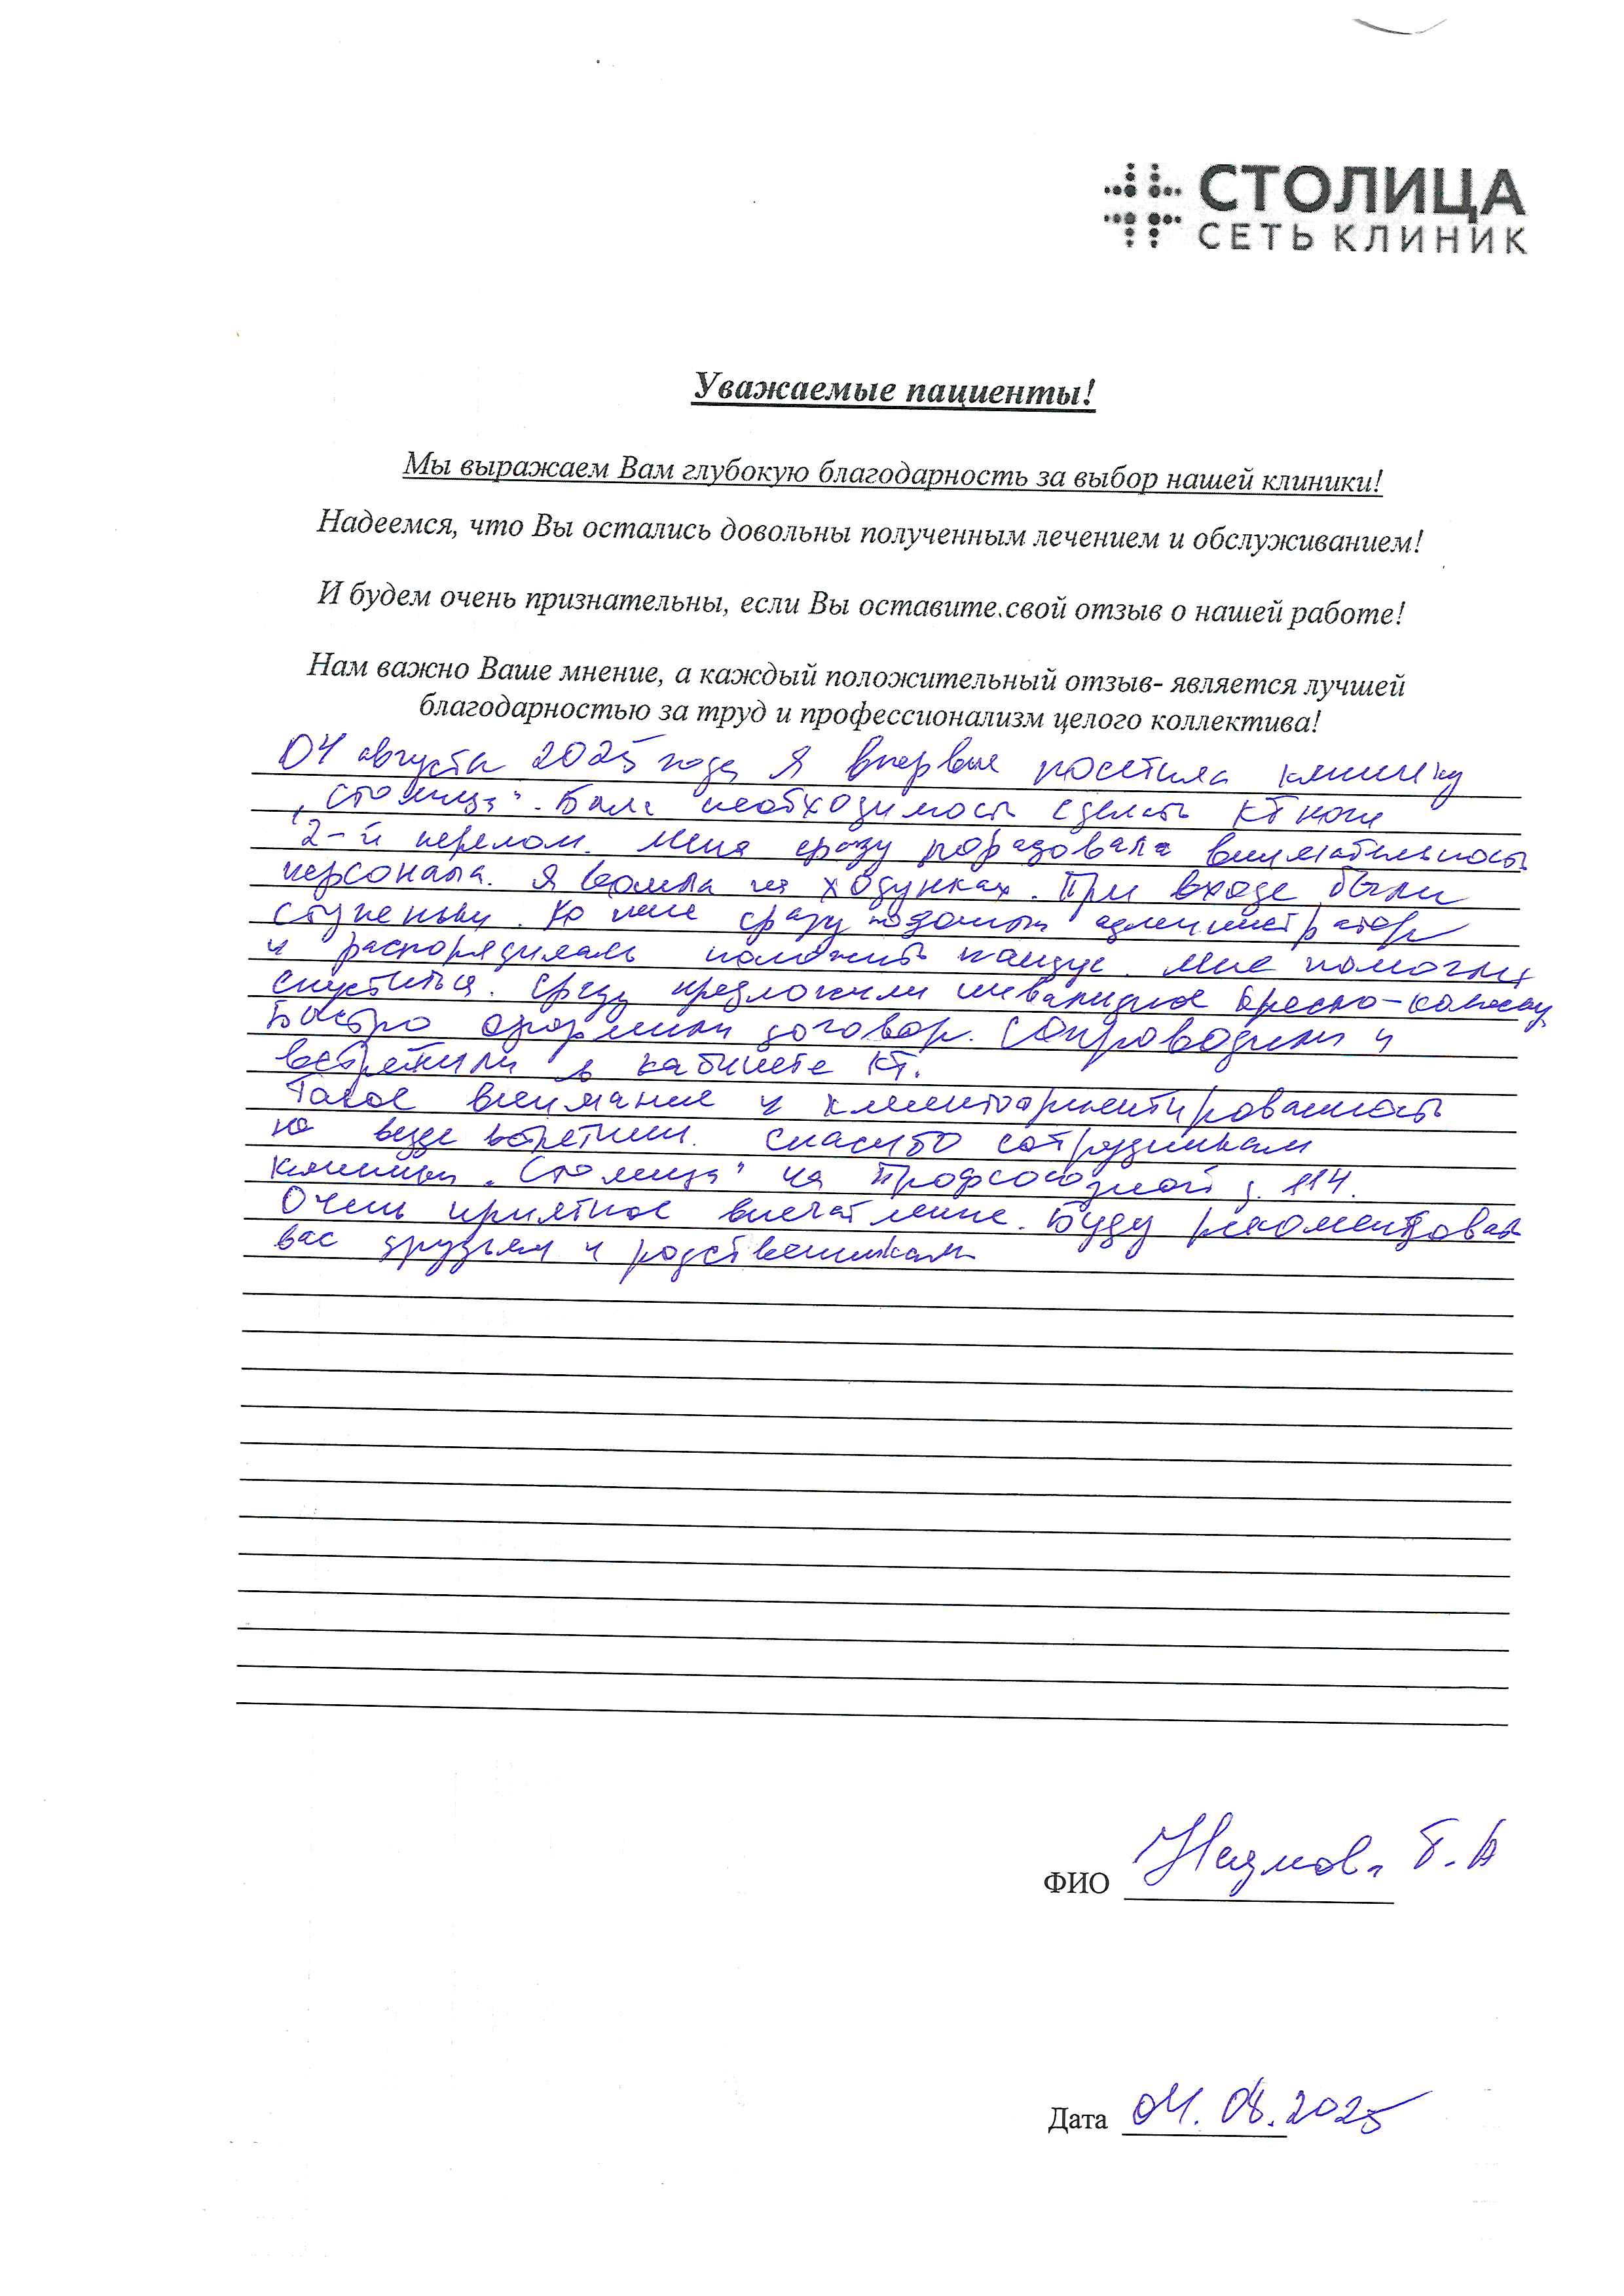 СТОЛИЦА
СЕТЬ КЛИНИК
Уважаемые пациенты!
Мы выражаем Вам глубокую благодарность за выбор нашей клиники!
Надеемся, что Вы остались довольны полученным лечением и обслуживанием!
И будем очень признательны, если Вы оставите свой отзыв о нашей работе!
Нам важно Ваше мнение, а каждый положительный отзыв- является лучшей
благодарностью за труд и профессионализм целого коллектива!
04 августа 2025 года я впервые посетила клинику
„Столица“. Была необходимость сделать КТ ноги
2-й перелом. Меня сразу порадовала внимательность
персонала. Я вошла на ходунках. При входе были
ступеньки. Ко мне сразу подошел администратор
и распорядилась положить пандус. Мне помогли
спуститься. Сразу предложили инвалидное кресло-коляску
Быстро оформили договор. Сопроводили и
встретили в кабинете КТ.
Такое внимание и клиентоориентированность
не везде встретишь. Спасибо сотрудникам
клиники „Столица“ на Профсоюзной д. 114.
Очень приятное впечатление. Буду рекомендовать
вас друзьям и родственникам
ФИО Т. А
Дата 04.08.2025